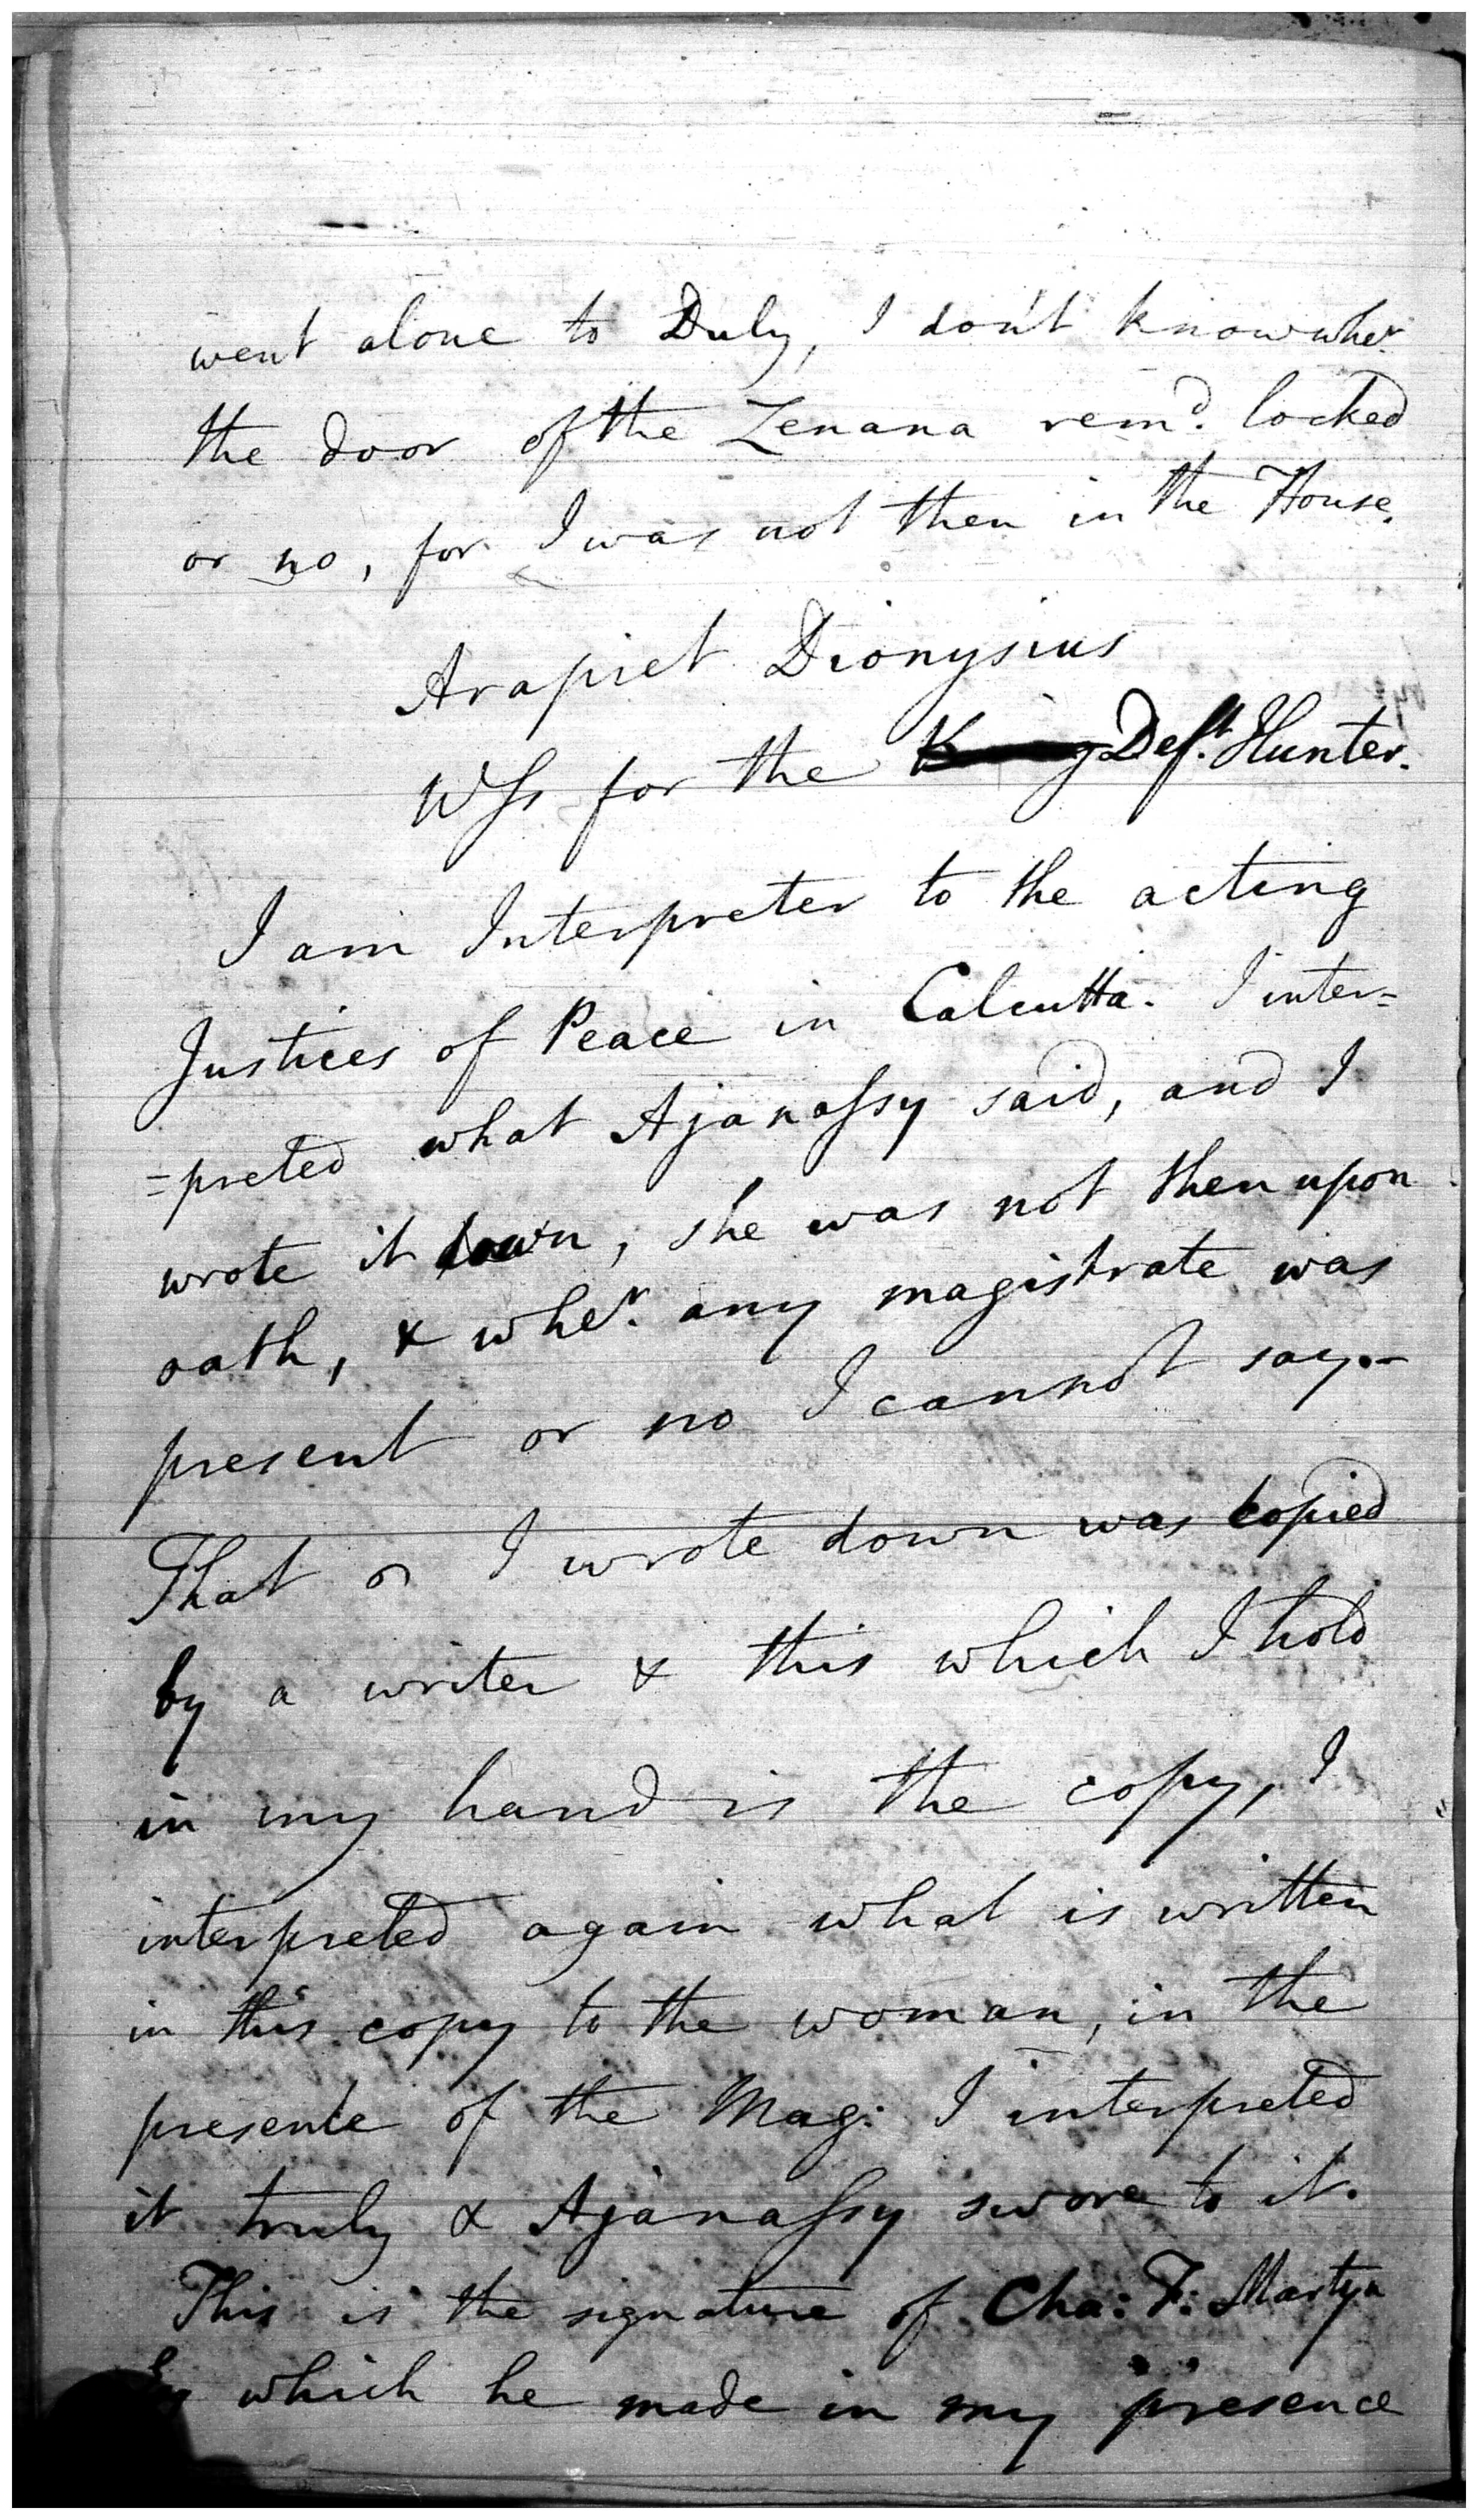 went alone to Duly, I don't know whe.r
the door of the Zenana rem.d locked
or no, for I was not then in the House.
Arapiet Dionysius
Wss for the King Def.t Hunter.
I am Interpreter to the acting
Justices of Peace in Calcutta. I inter=
=preted what Ajanassy said, and I
wrote it down, she was not then upon
oath, & whe.r any magistrate was
present or no I cannot say.—
That I wrote down was copied
by a writer & this which I hold
in my hand is the copy, I
interpreted again what is written
in this copy to the woman, in the
presence of the Mag: I interpreted
it truly & Ajanassy swore to it.
This is the signature of Cha: F: Martyn
which he made in my presence